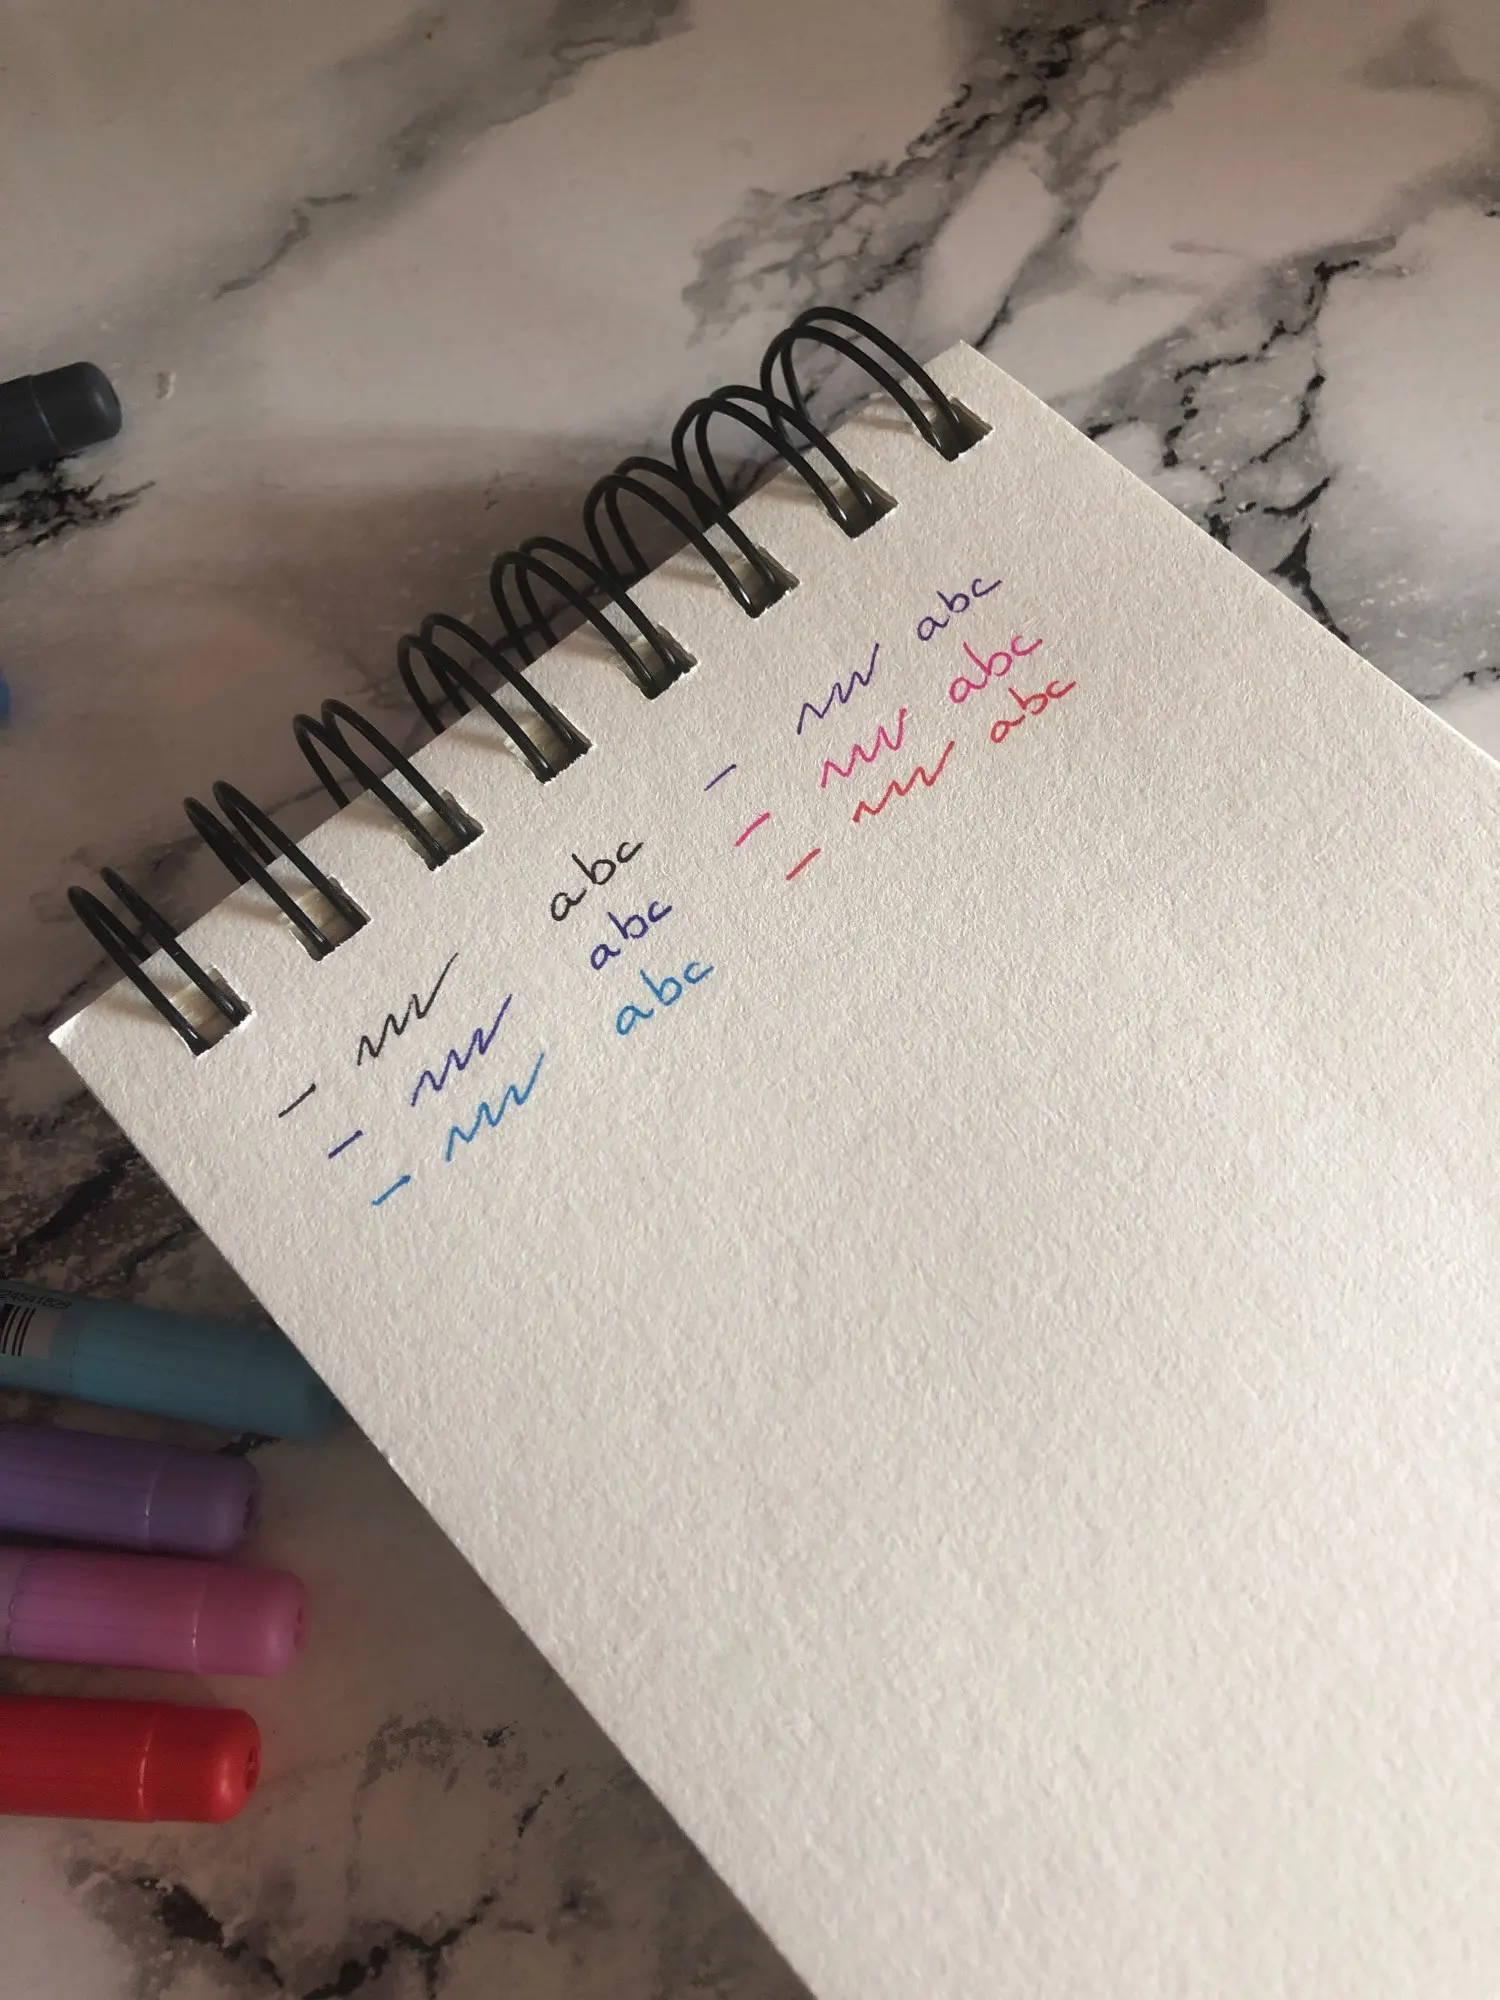 - abc
- abc
- abc
- abc
- abc
- abc
24541829